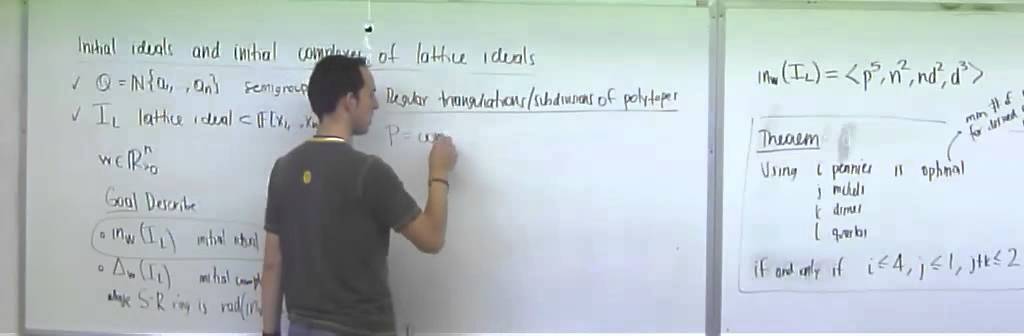 Initial ideals and initial complexes of lattice ideals
✓ Q = ℕ{a₁, , aₙ} semigroup
✓ I_L lattice ideal ⊂ F[x₁, ,xₙ
w ∈ ℝⁿ≥0
Goal Describe
• in_w(I_L) initial ideal
• Δ_w(I_L) initial compl
whose S-R ring is rad(in_w
Regular triangulations/subdivisions of polytopes
P = con
in_w(I_L) = <p⁵, n², nd², d³>
min # of
for desired
Theorem
Using i pennies is optimal
j nickels
k dimes
l quarters
if and only if i ≤ 4, j ≤ 1, j+k ≤ 2